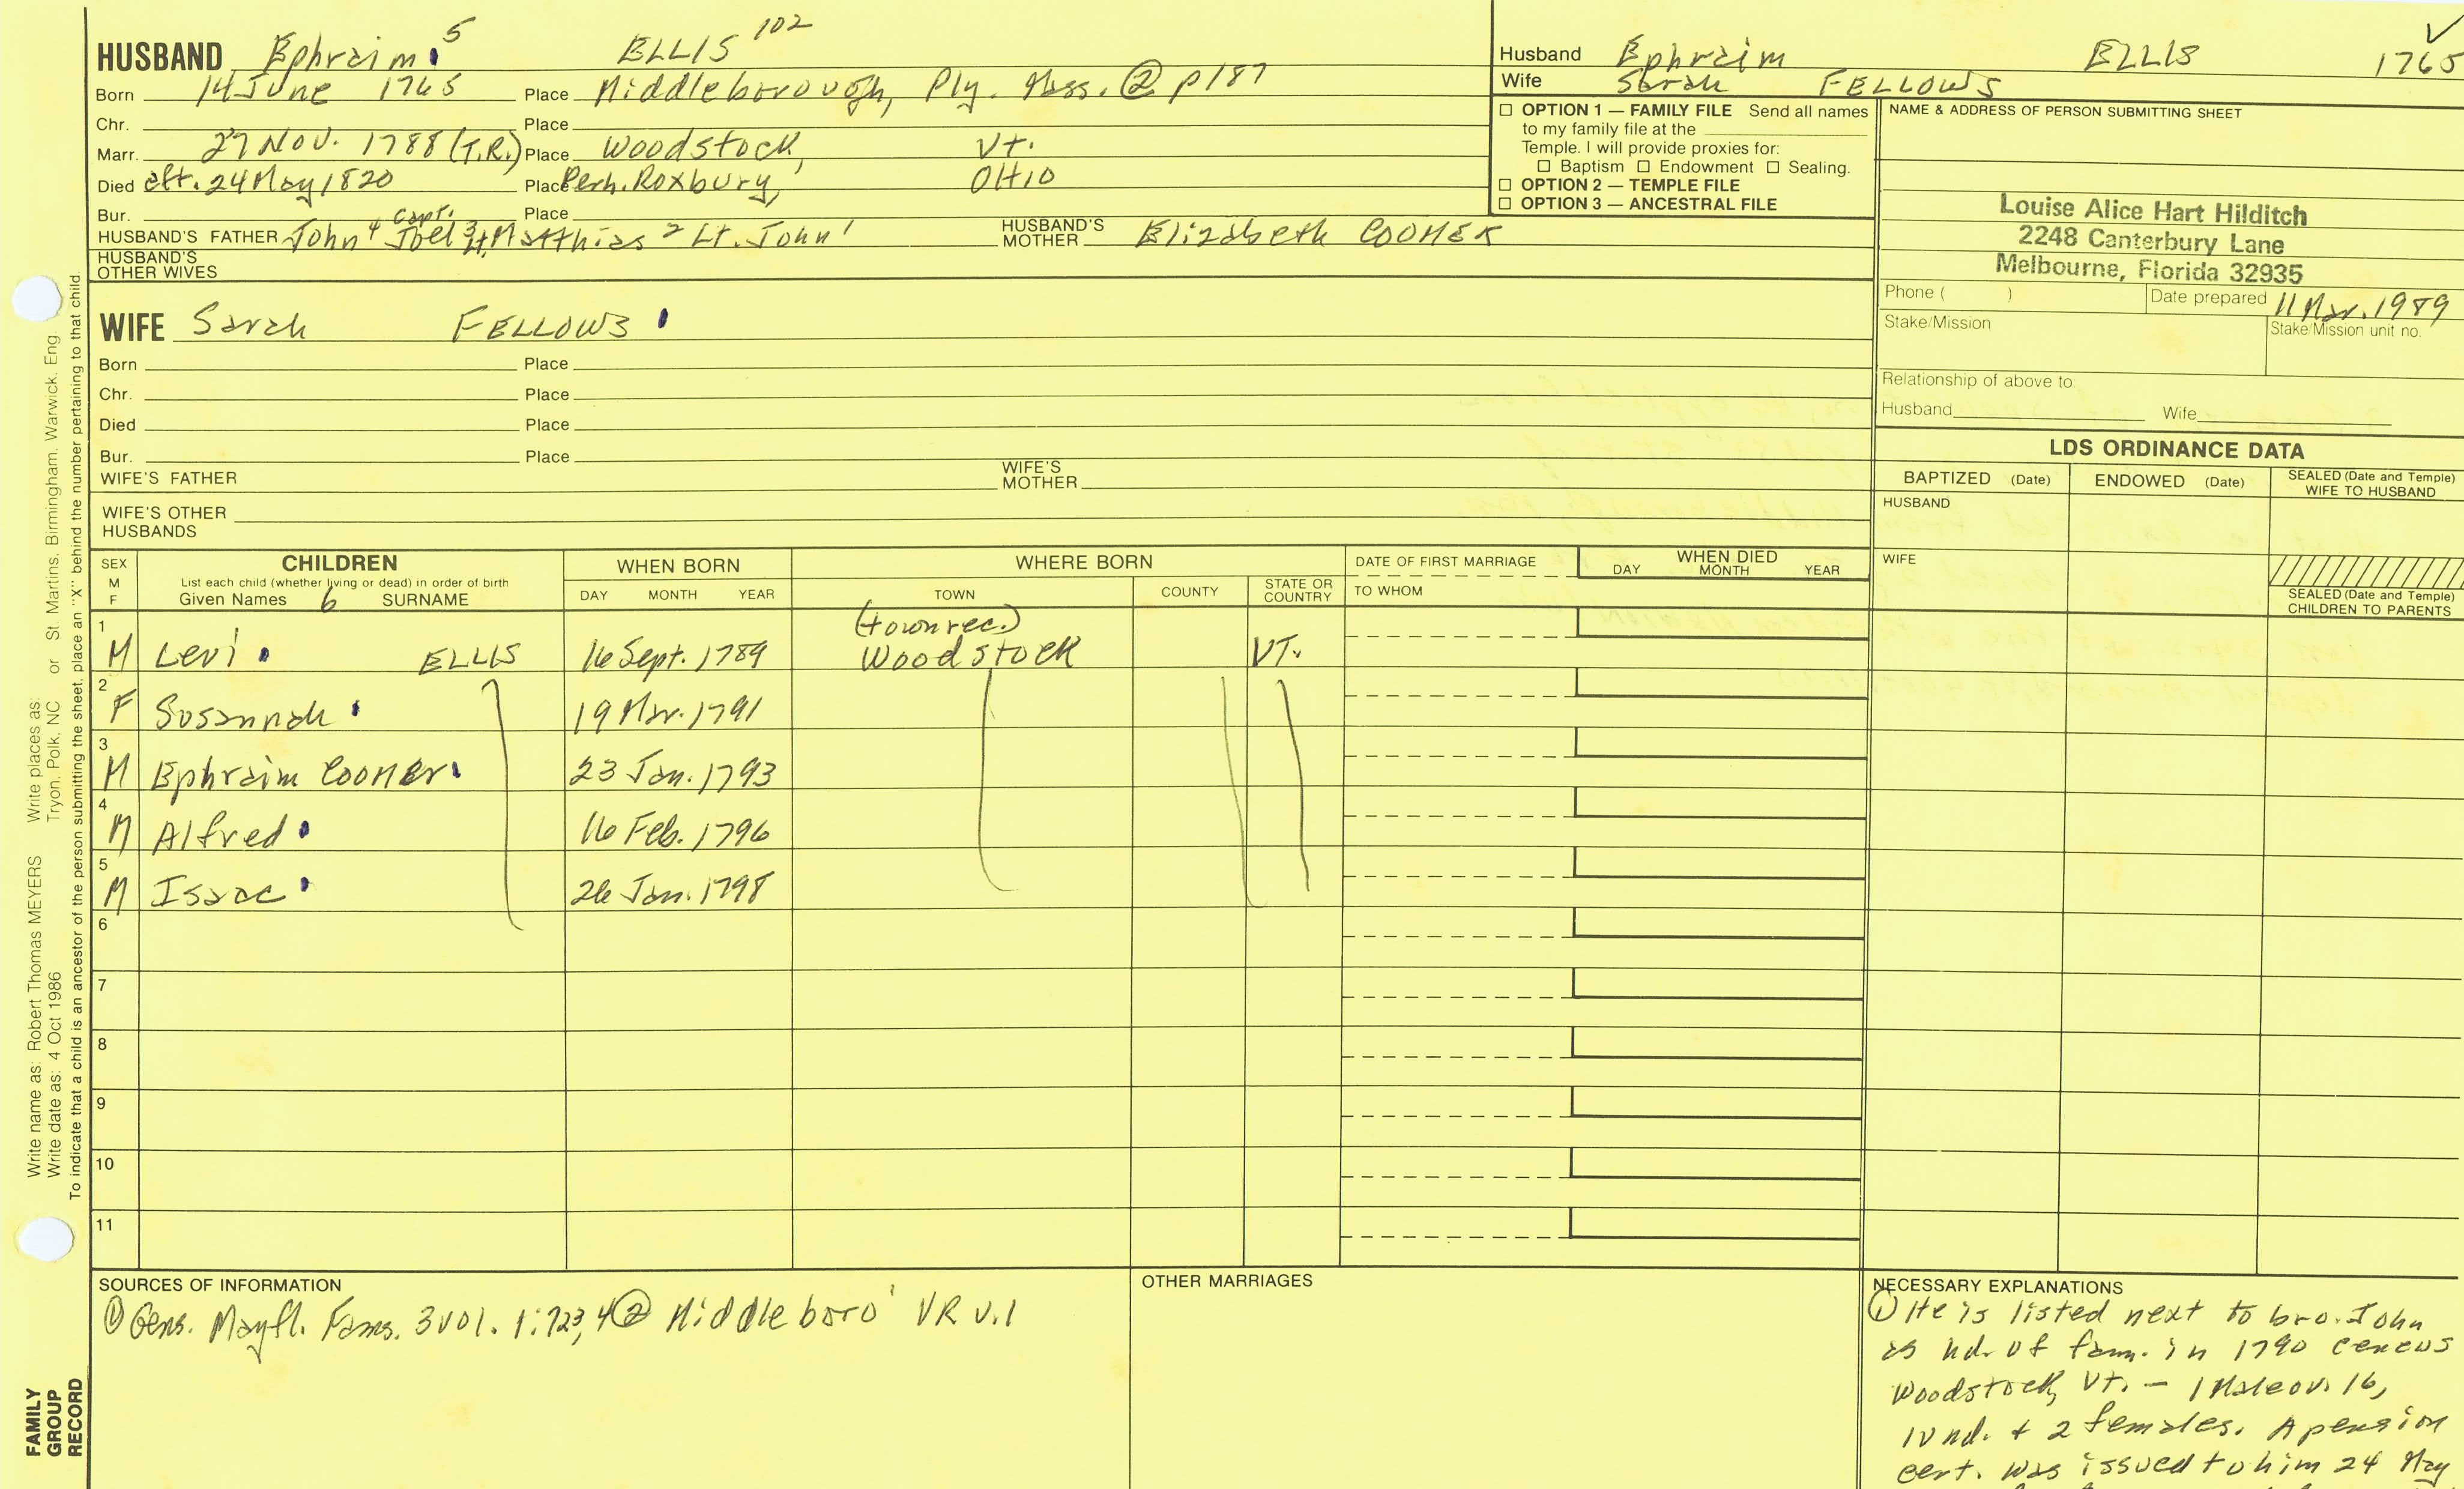 HUSBAND Ephraim 5 ELLIS 102
Born 14 June 1765 Place Middleborough, Ply. Mass. @ p187
Chr. Place
Marr. 27 Nov. 1788 (T.R.) Place Woodstock, Vt.
Died aft. 24 May 1820 Place Perh. Roxbury, OHIO
Bur. Place
HUSBAND'S FATHER John 4 Capt. Joel 3 Lt. Matthias 2 Lt. John 1 HUSBAND'S MOTHER Elizabeth COOMER
HUSBAND'S OTHER WIVES
WIFE Sarah FELLOWS
Born Place
Chr. Place
Died Place
Bur. Place
WIFE'S FATHER WIFE'S MOTHER
WIFE'S OTHER HUSBANDS
Husband Ephraim ELLIS 1765
Wife Sarah FELLOWS
☐ OPTION 1 — FAMILY FILE Send all names
to my family file at the
Temple. I will provide proxies for:
☐ Baptism ☐ Endowment ☐ Sealing.
☐ OPTION 2 — TEMPLE FILE
☐ OPTION 3 — ANCESTRAL FILE
NAME & ADDRESS OF PERSON SUBMITTING SHEET
Louise Alice Hart Hilditch
2248 Canterbury Lane
Melbourne, Florida 32935
Phone ( ) Date prepared 11 Mar. 1989
Stake/Mission Stake/Mission unit no.
Relationship of above to
Husband Wife
LDS ORDINANCE DATA
BAPTIZED (Date) ENDOWED (Date) SEALED (Date and Temple) WIFE TO HUSBAND
HUSBAND
WIFE
SEALED (Date and Temple) CHILDREN TO PARENTS
SEX M F CHILDREN WHEN BORN WHERE BORN DATE OF FIRST MARRIAGE WHEN DIED
List each child (whether living or dead) in order of birth
Given Names 6 SURNAME DAY MONTH YEAR TOWN COUNTY STATE OR COUNTRY TO WHOM DAY MONTH YEAR
(town rec.)
1 M Levi ELLIS 16 Sept. 1789 Woodstock VT.
2 F Susannah 19 Mar. 1791
3 M Ephraim COOMER 23 Jan. 1793
4 M Alfred 16 Feb. 1796
5 M Isaac 26 Jan. 1798
6
7
8
9
10
11
SOURCES OF INFORMATION
① Gens. Mayfl. Fams. 3 vol. 1:723,4 ② Middleboro' VR v.1
OTHER MARRIAGES
NECESSARY EXPLANATIONS
① He is listed next to bro. John
as hd. of fam. in 1790 census
Woodstock, Vt. — 1 Male ov. 16,
1 und. + 2 females. A pension
cert. was issued to him 24 May
Write name as: Robert Thomas MEYERS Write places as: Tryon, Polk, NC or St. Martins, Birmingham, Warwick, Eng.
Write date as: 4 Oct 1986
To indicate that a child is an ancestor of the person submitting the sheet, place an "X" behind the number pertaining to that child.
FAMILY
GROUP
RECORD